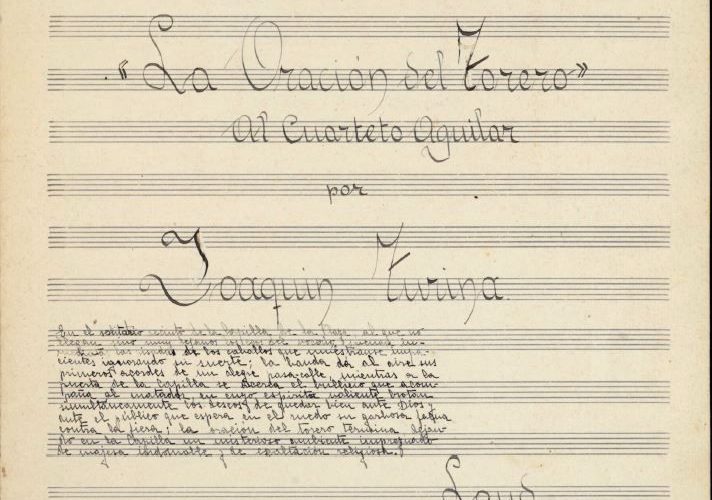 «La Oración del Torero»
Al Cuarteto Aguilar
por
Joaquin Turina
En el solitario recinto de la Capilla de la Plaza, al que no
llegan sino muy lejanos
las de los caballos que muestranse impa-
cientes ignorando su suerte; la banda dá al aire sus
primeros acordes de un alegre pasa-calle, mientras a la
puerta de la Capilla se acerca el bullicio que acom-
paña al matador, en cuyo espiritu valiente brotan
simultaneamente los deseos de quedar bien ante Dios y
ante el público que espera en el ruedo su garbosa
contra la fiera; la oración del torero termina dejan-
do en la Capilla un misterioso ambiente impregnado
de majeza indomable y de exaltación religiosa.
Laud